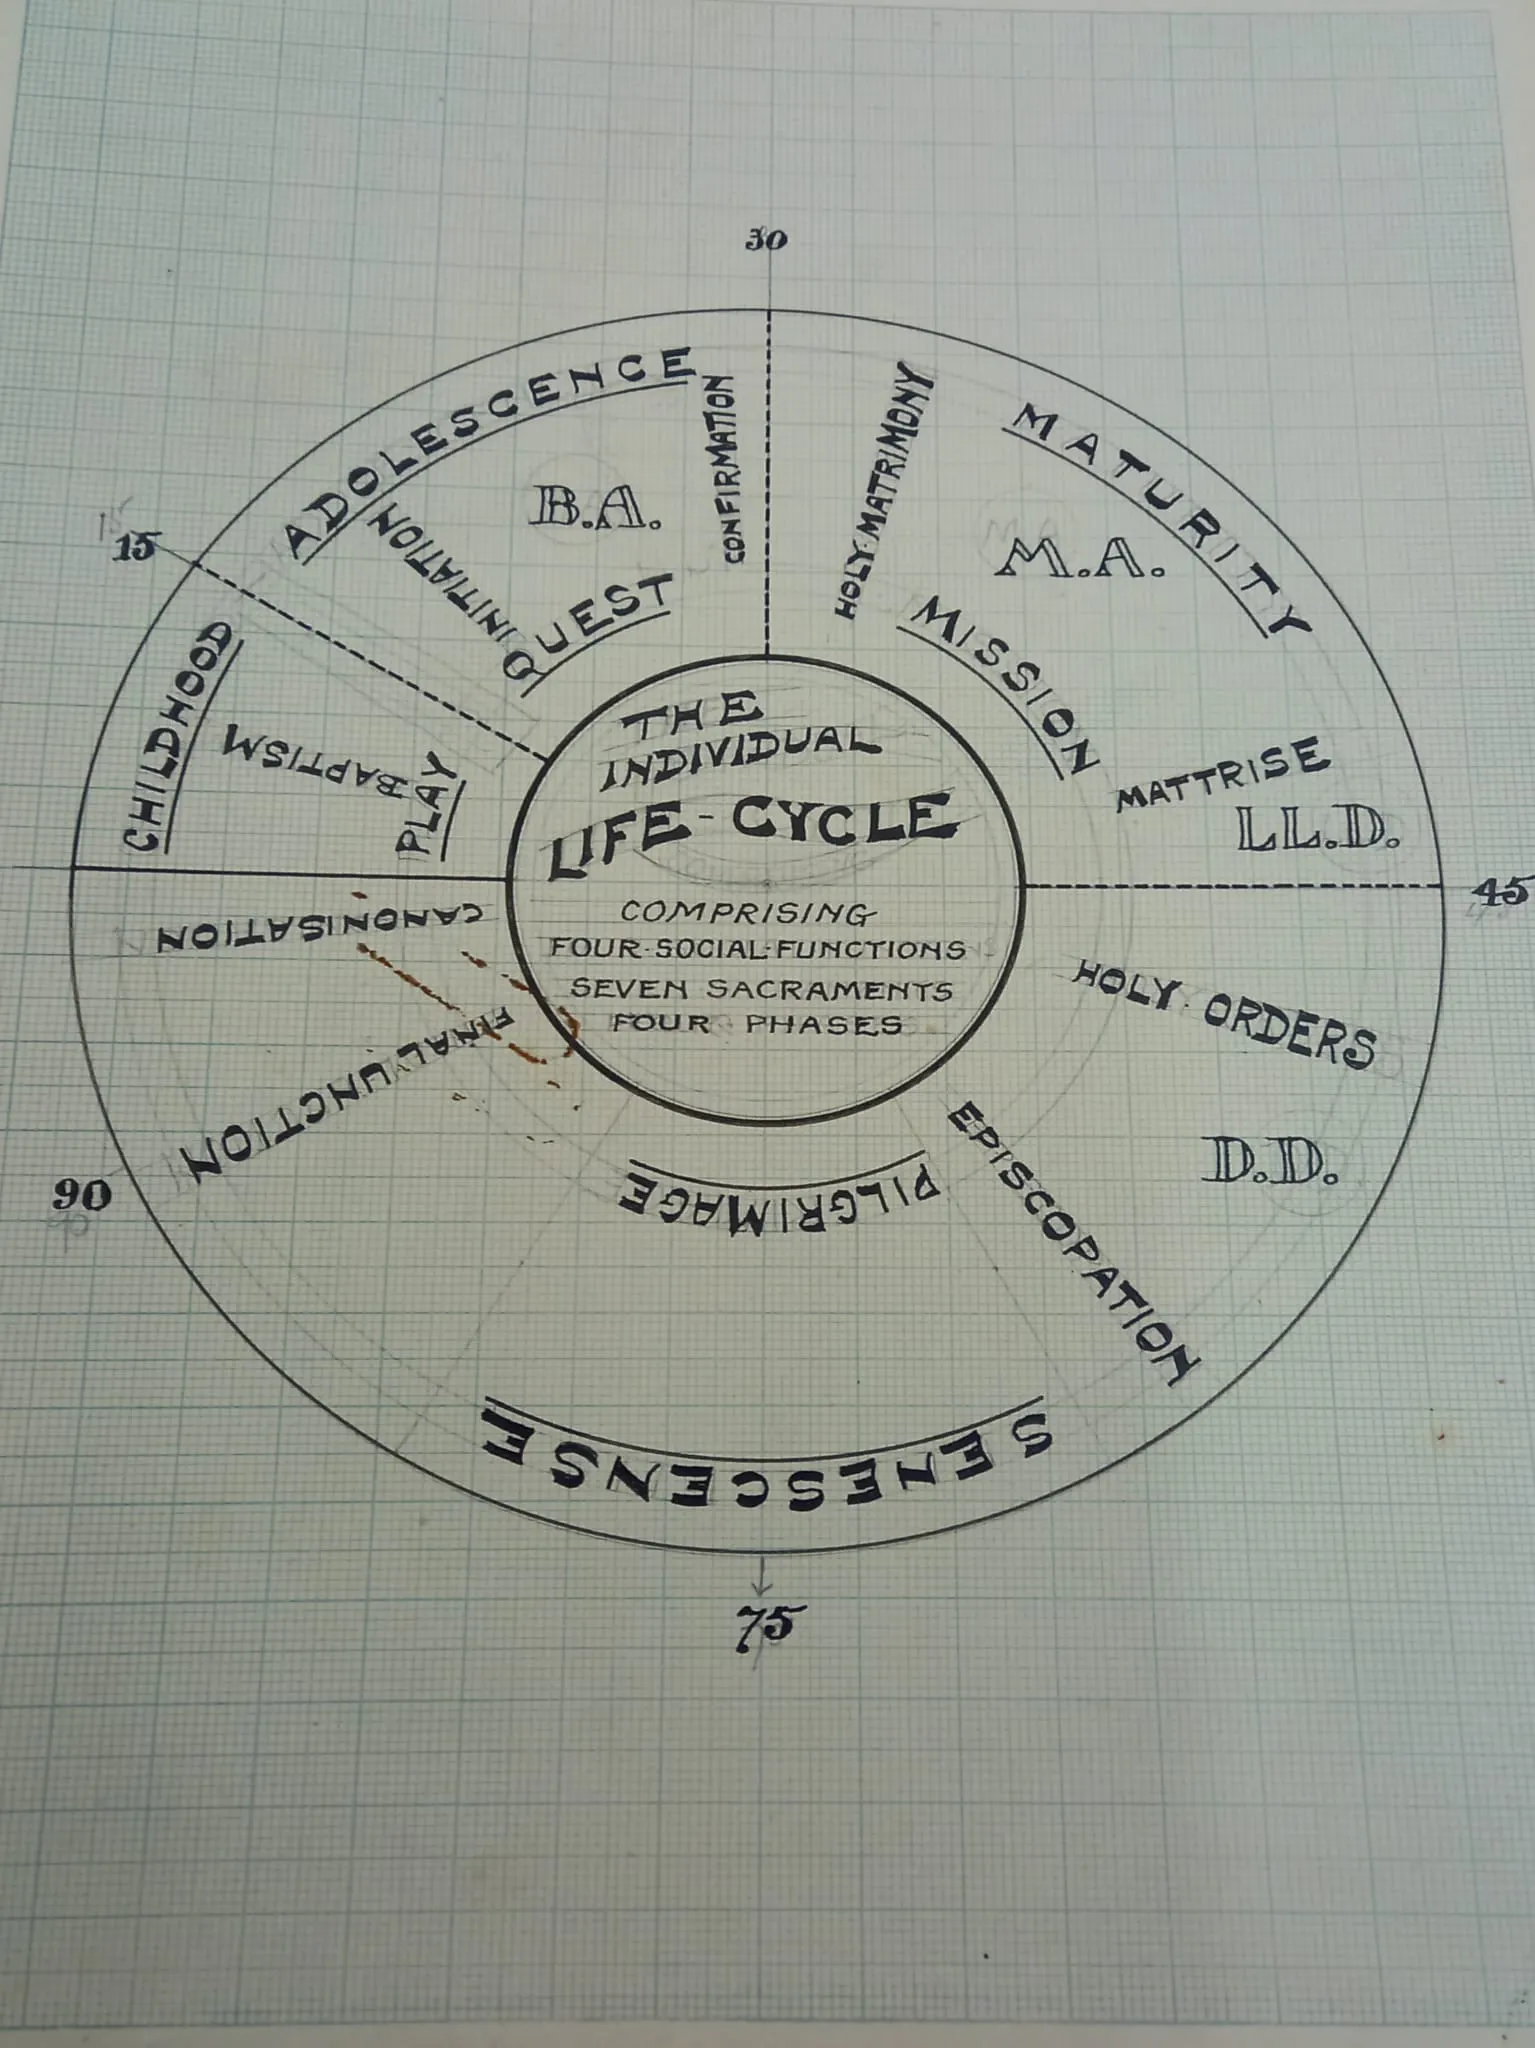 30
15
45
90
75
THE
INDIVIDUAL
LIFE-CYCLE
COMPRISING
FOUR·SOCIAL·FUNCTIONS
SEVEN SACRAMENTS
FOUR PHASES
CHILDHOOD
BAPTISM
PLAY
ADOLESCENCE
INITIATION
B.A.
QUEST
CONFIRMATION
HOLY·MATRIMONY
MATURITY
M.A.
MISSION
MATTRISE
LL.D.
HOLY·ORDERS
D.D.
EPISCOPATION
PILGRIMAGE
SENESCENSE
FINAL UNCTION
CANONISATION